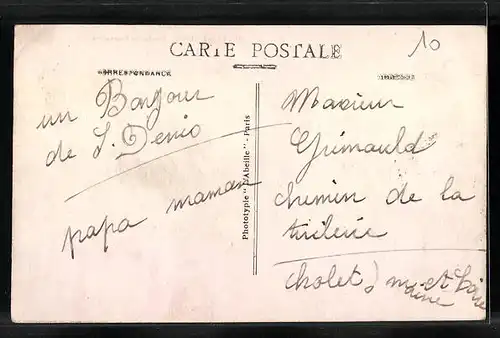 CARTE POSTALE
10
CORRESPONDANCE
ADRESSE
un Bonjour
de S. Denis
papa maman
Phototypie "d'Abeille" - Paris
Monsieur
Grimauld
chemin de la
tuilerie
Cholet, maine et Loire